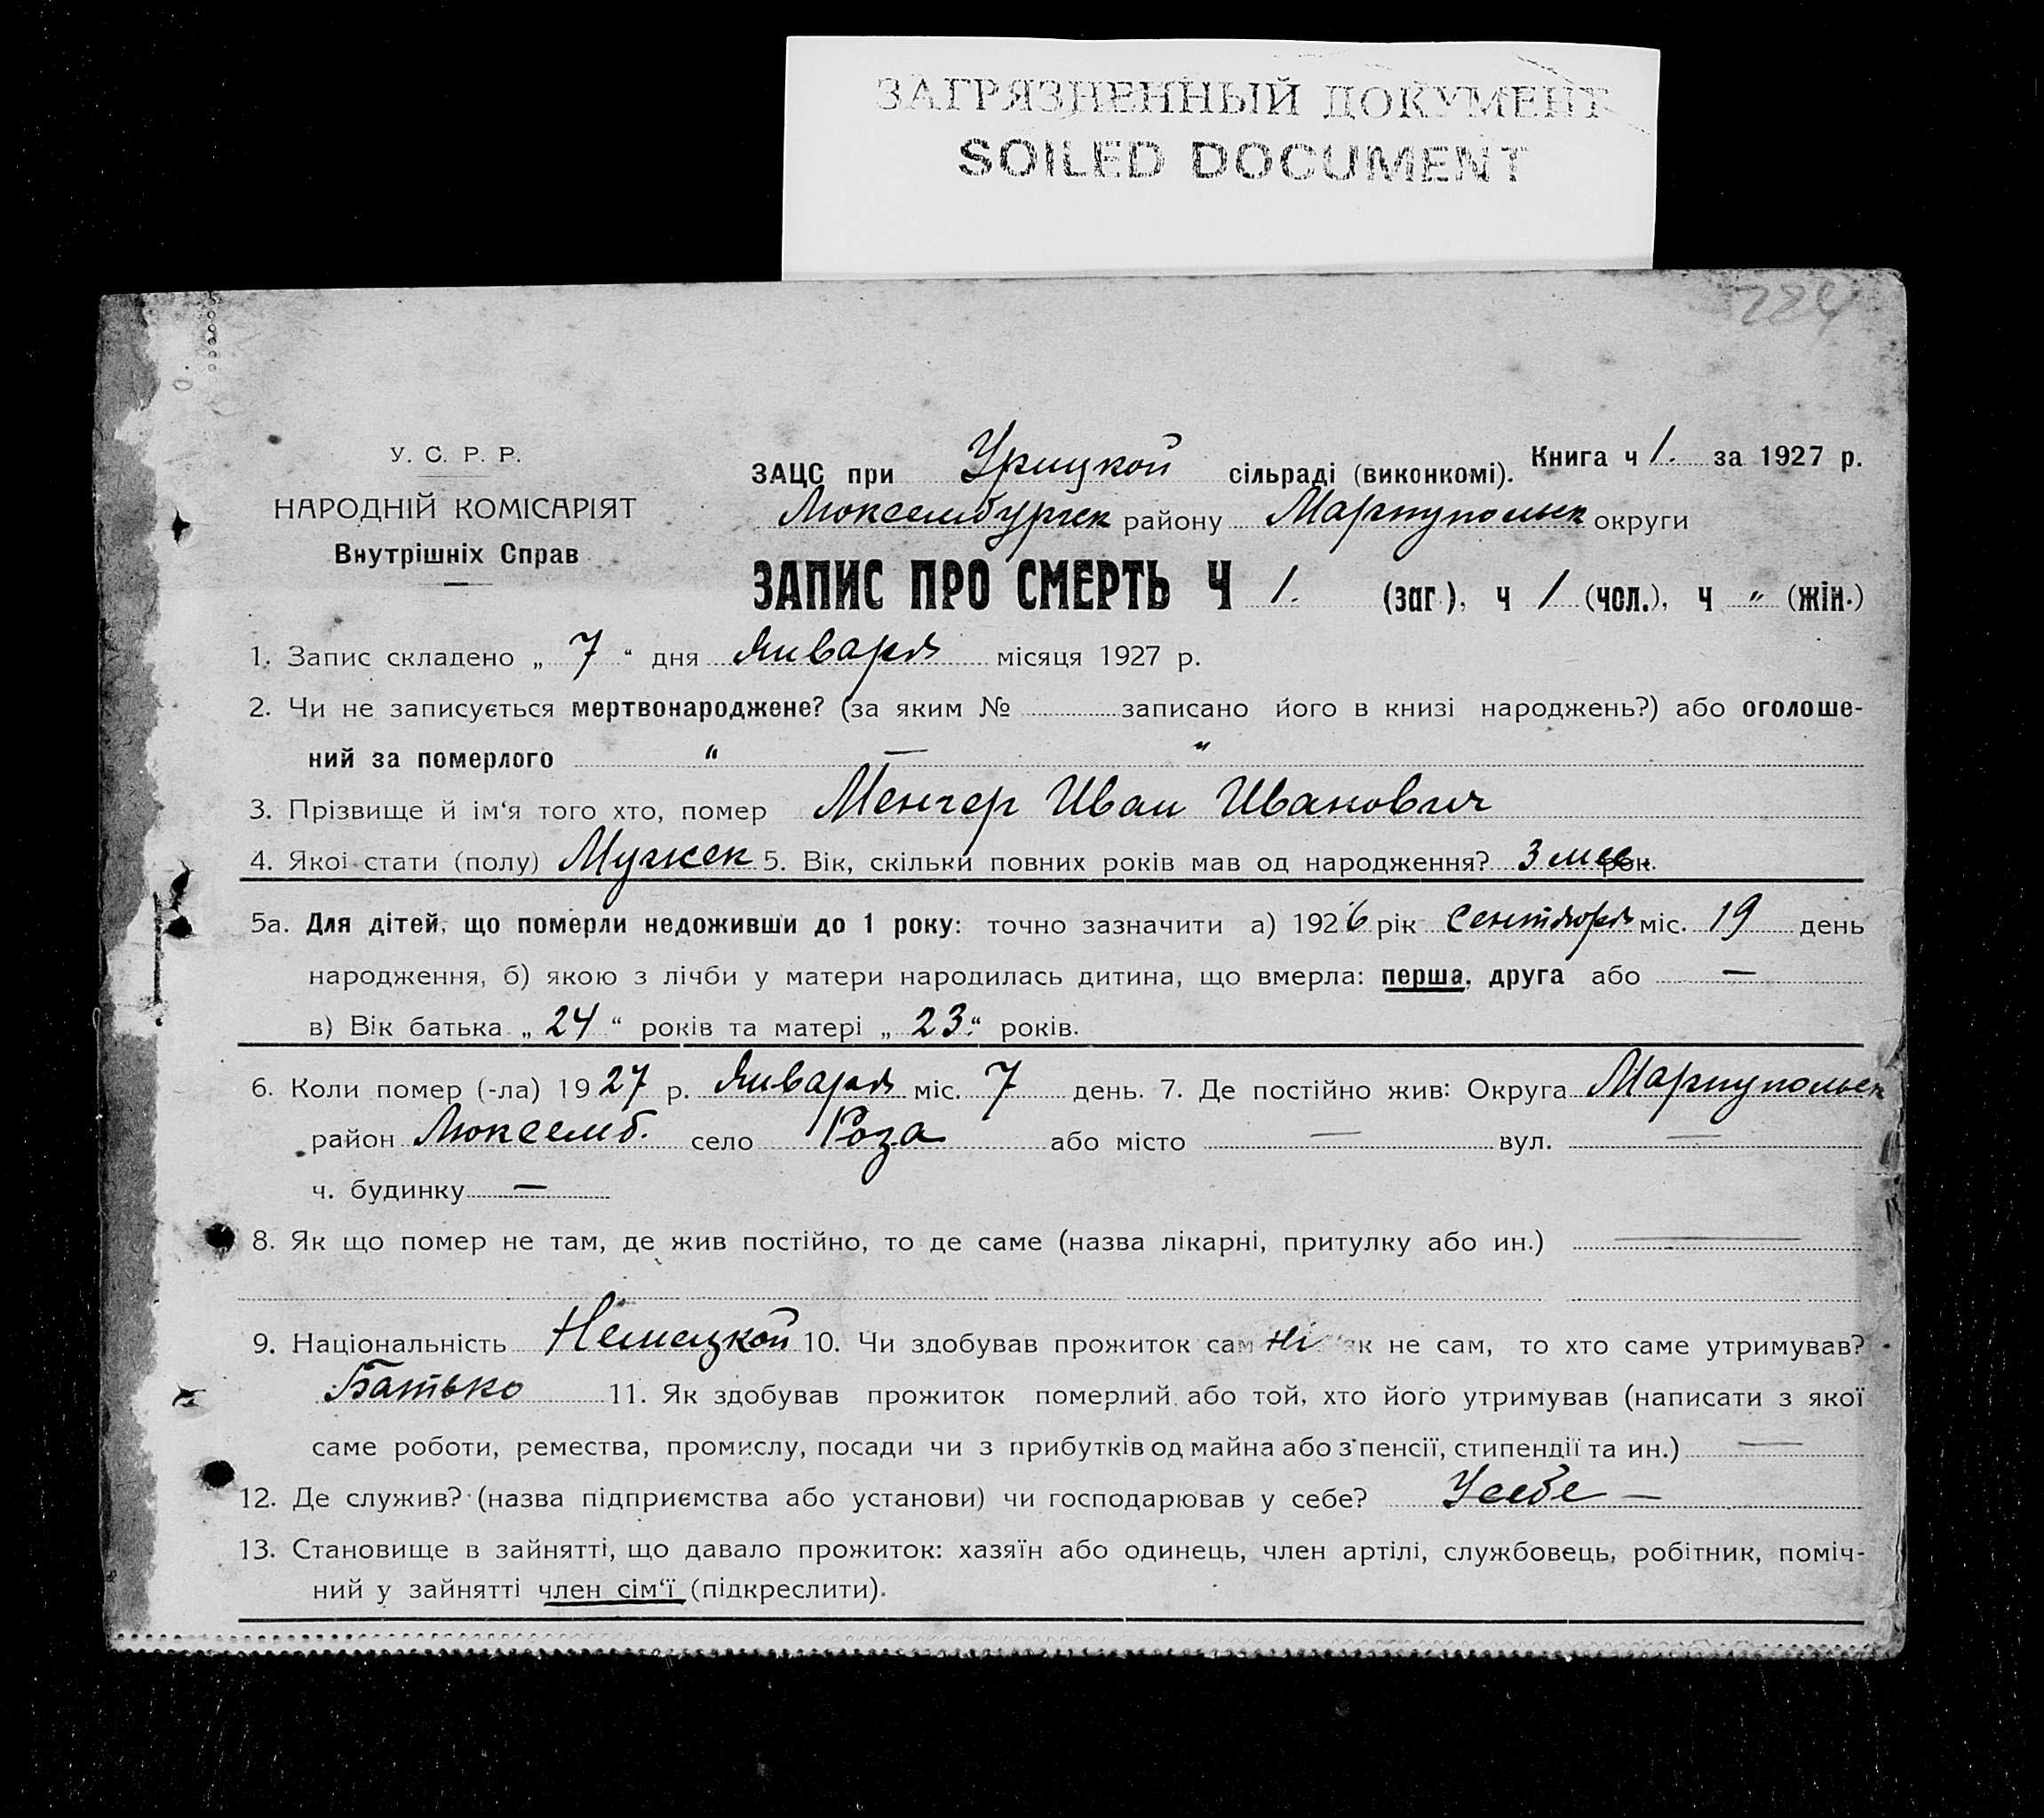 ЗАГРЯЗНЕННЫЙ ДОКУМЕНТ
SOILED DOCUMENT
784
У. С. Р. Р.
НАРОДНІЙ КОМІСАРІЯТ
Внутрішніх Справ
ЗАЦС при Урицкой сільраді (виконкомі). Книга ч 1. за 1927 р.
Люксембургск району Мариупольск округи
ЗАПИС ПРО СМЕРТЬ Ч 1. (заг.), ч 1 (чол.), ч „ (жін.)
1. Запис складено „ 7 “ дня Января місяця 1927 р.
2. Чи не записується мертвонароджене? (за яким № записано його в книзі народжень?) або оголоше-
ний за померлого “ — “
3. Прізвище й ім‘я того хто, помер Менгер Иван Иванович
4. Якоі стати (полу) Мужск 5. Вік, скільки повних років мав од народження? 3 мес. рок.
5а. Для дітей, що померли недоживши до 1 року: точно зазначити а) 1926 рік Сентября міс. 19 день
народження, б) якою з лічби у матери народилась дитина, що вмерла: перша, друга або —
в) Вік батька „ 24 “ років та матері „ 23. “ років.
6. Коли помер (-ла) 1927 р. Января міс. 7 день. 7. Де постійно жив: Округа Мариупольск
район Люксемб. село Роза або місто — вул. —
ч. будинку —
8. Як що помер не там, де жив постійно, то де саме (назва лікарні, притулку або ин.) —
9. Національність Немецкой 10. Чи здобував прожиток сам ні як не сам, то хто саме утримував?
Батько 11. Як здобував прожиток померлий або той, хто його утримував (написати з якої
саме роботи, ремества, промислу, посади чи з прибутків од майна або з пенсії, стипендії та ин.) —
12. Де служив? (назва підприємства або установи) чи господарював у себе? Усебе —
13. Становище в зайнятті, що давало прожиток: хазяїн або одинець, член артілі, службовець, робітник, поміч-
ний у зайнятті член сім‘ї (підкреслити).